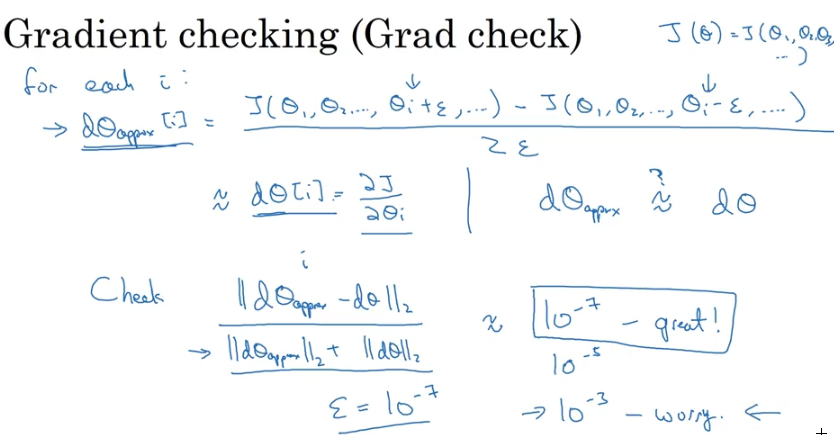 Gradient checking (Grad check)
J(θ) = J(θ₁, θ₂, θ₃, ...)
for each i:
→ dθapprox[i] = J(θ₁, θ₂, ..., θᵢ+ε, ...) - J(θ₁, θ₂, ..., θᵢ-ε, ....) / 2ε
≈ dθ[i] = ∂J/∂θᵢ | dθapprox ≈? dθ
i
Check ‖dθapprox - dθ‖₂ / ‖dθapprox‖₂ + ‖dθ‖₂ ≈ 10⁻⁷ - great!
10⁻⁵
ε = 10⁻⁷ → 10⁻³ - worry. ←